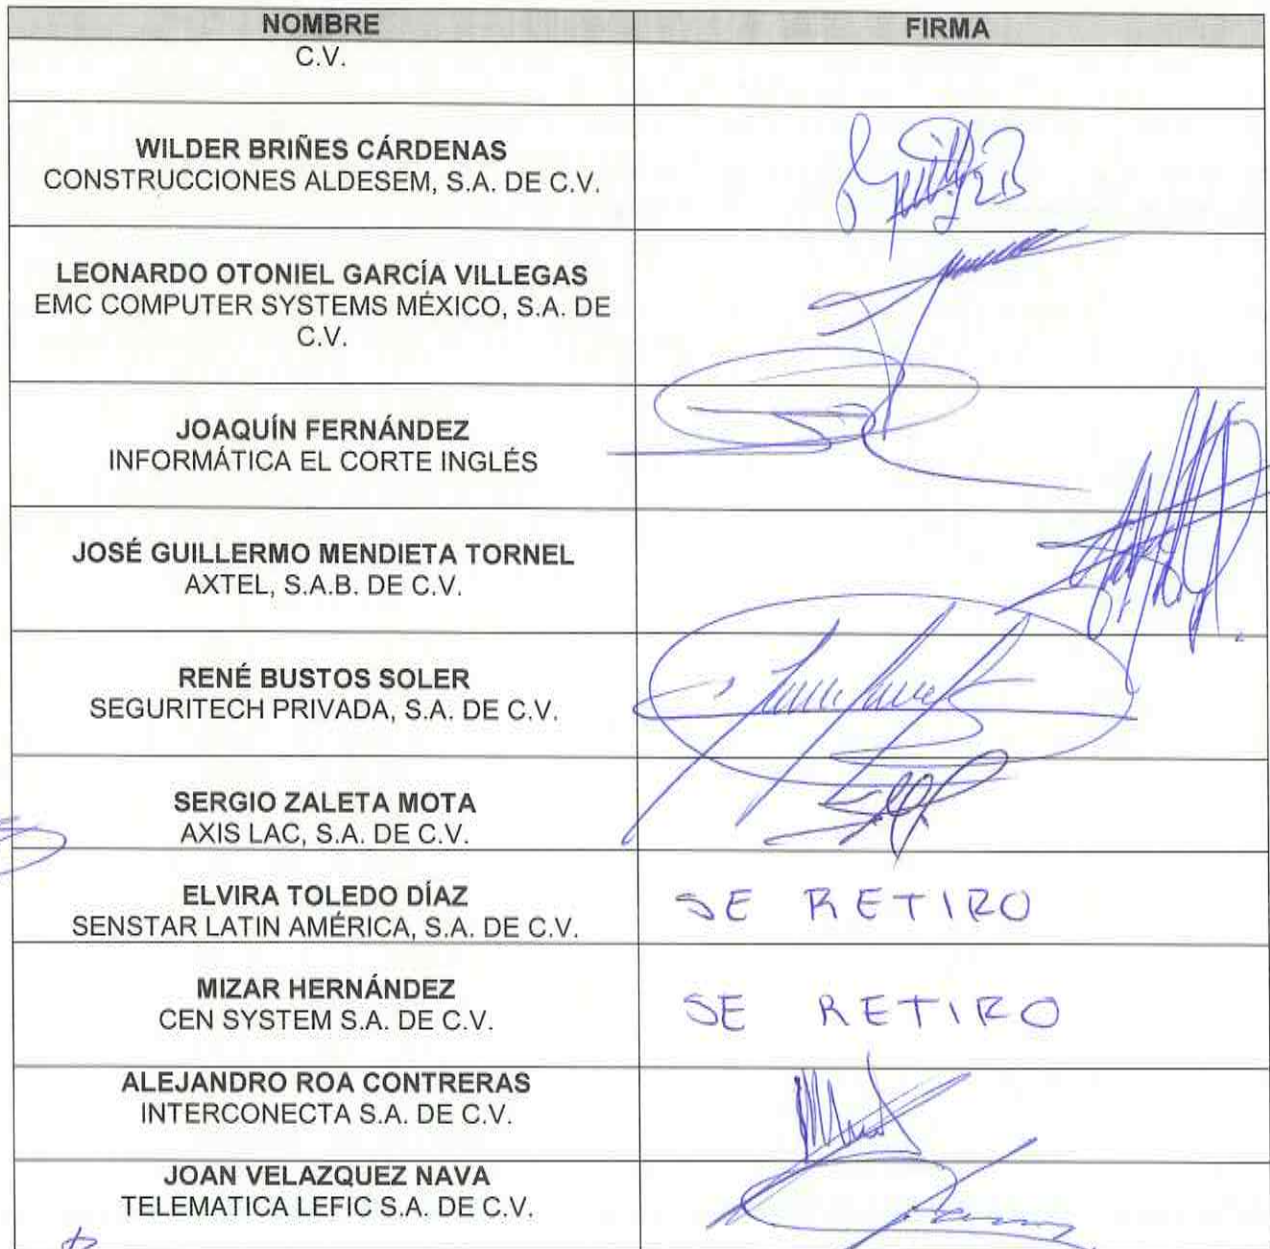 NOMBRE FIRMA
C.V.
WILDER BRIÑES CÁRDENAS
CONSTRUCCIONES ALDESEM, S.A. DE C.V.
LEONARDO OTONIEL GARCÍA VILLEGAS
EMC COMPUTER SYSTEMS MÉXICO, S.A. DE
C.V.
JOAQUÍN FERNÁNDEZ
INFORMÁTICA EL CORTE INGLÉS
JOSÉ GUILLERMO MENDIETA TORNEL
AXTEL, S.A.B. DE C.V.
RENÉ BUSTOS SOLER
SEGURITECH PRIVADA, S.A. DE C.V.
SERGIO ZALETA MOTA
AXIS LAC, S.A. DE C.V.
ELVIRA TOLEDO DÍAZ
SENSTAR LATIN AMÉRICA, S.A. DE C.V.
SE RETIRO
MIZAR HERNÁNDEZ
CEN SYSTEM S.A. DE C.V.
SE RETIRO
ALEJANDRO ROA CONTRERAS
INTERCONECTA S.A. DE C.V.
JOAN VELAZQUEZ NAVA
TELEMATICA LEFIC S.A. DE C.V.